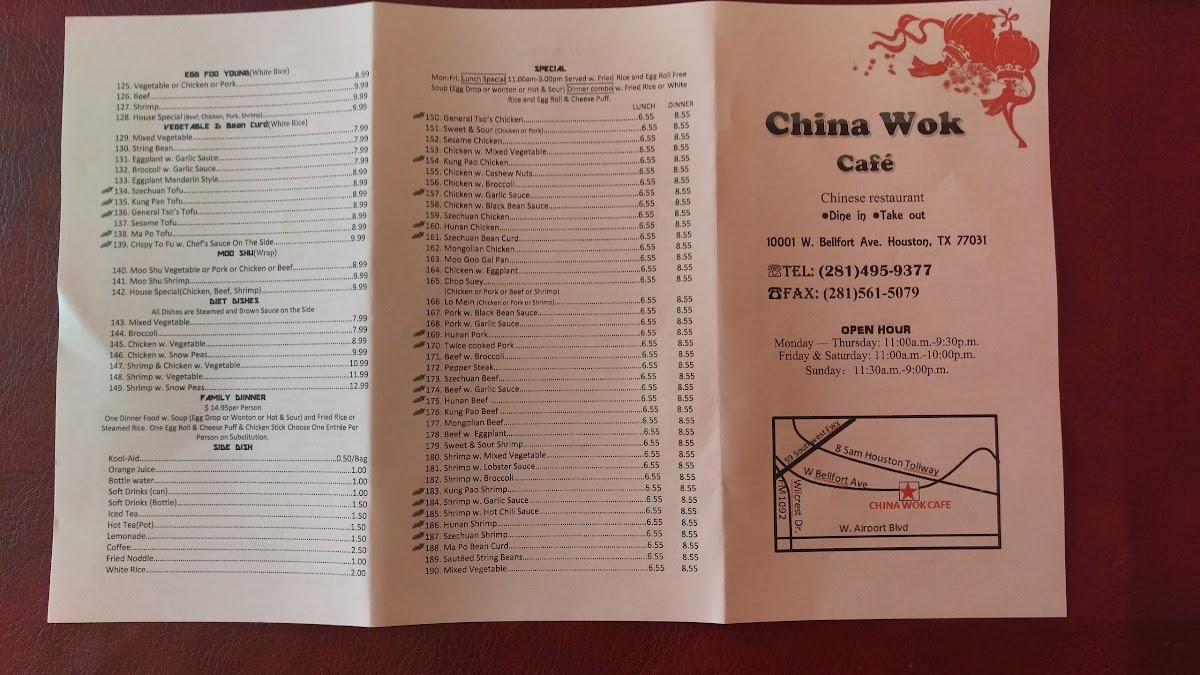 EGG FOO YOUNG(White Rice)
125. Vegetable or Chicken or Pork 8.99
126. Beef 9.99
127. Shrimp 9.99
128. House Special (Beef, Chicken, Pork, Shrimp) 9.99
VEGETABLE & Bean Curd(White Rice)
129. Mixed Vegetable 7.99
130. String Bean 7.99
131. Eggplant w. Garlic Sauce 7.99
132. Broccoli w. Garlic Sauce 7.99
133. Eggplant Mandarin Style 8.99
134. Szechuan Tofu 8.99
135. Kung Pao Tofu 8.99
136. General Tso's Tofu 8.99
137. Sesame Tofu 8.99
138. Ma Po Tofu 8.99
139. Crispy To Fu w. Chef's Sauce On The Side 9.99
MOO SHU(Wrap)
140. Moo Shu Vegetable or Pork or Chicken or Beef 8.99
141. Moo Shu Shrimp 9.99
142. House Special(Chicken, Beef, Shrimp) 9.99
DIET DISHES
All Dishes are Steamed and Brown Sauce on the Side
143. Mixed Vegetable 7.99
144. Broccoli 7.99
145. Chicken w. Vegetable 8.99
146. Chicken w. Snow Peas 9.99
147. Shrimp & Chicken w. Vegetable 10.99
148. Shrimp w. Vegetable 11.99
149. Shrimp w. Snow Peas 12.99
FAMILY DIINNER
$ 14.95per Person
One Dinner Food w. Soup (Egg Drop or Wonton or Hot & Sour) and Fried Rice or
Steamed Rice. One Egg Roll & Cheese Puff & Chicken Stick Choose One Entrée Per
Person on Substitution.
SIDE DISH
Kool-Aid 0.50/Bag
Orange Juice 1.00
Bottle water 1.00
Soft Drinks (can) 1.00
Soft Drinks (Bottle) 1.50
Iced Tea 1.50
Hot Tea(Pot) 1.50
Lemonade 1.50
Coffee 2.50
Fried Noddle 1.00
White Rice 2.00
SPECIAL
Mon-Fri. Lunch Special 11:00am-3:00pm Served w. Fried Rice and Egg Roll Free
Soup (Egg Drop or wonton or Hot & Sour) Dinner combo w. Fried Rice or White
Rice and Egg Roll & Cheese Puff.
LUNCH DINNER
150. General Tso's Chicken 6.55 8.55
151. Sweet & Sour (Chicken or Pork) 6.55 8.55
152. Sesame Chicken 6.55 8.55
153. Chicken w. Mixed Vegetable 6.55 8.55
154. Kung Pao Chicken 6.55 8.55
155. Chicken w. Cashew Nuts 6.55 8.55
156. Chicken w. Broccoli 6.55 8.55
157. Chicken w. Garlic Sauce 6.55 8.55
158. Chicken w. Black Bean Sauce 6.55 8.55
159. Szechuan Chicken 6.55 8.55
160. Hunan Chicken 6.55 8.55
161. Szechuan Bean Curd 6.55 8.55
162. Mongolian Chicken 6.55 8.55
163. Moo Goo Gai Pan 6.55 8.55
164. Chicken w. Eggplant 6.55 8.55
165. Chop Suey 6.55 8.55
(Chicken or Pork or Beef or Shrimp)
166. Lo Mein (Chicken or Pork or Shrimp) 6.55 8.55
167. Pork w. Black Bean Sauce 6.55 8.55
168. Pork w. Garlic Sauce 6.55 8.55
169. Hunan Pork 6.55 8.55
170. Twice cooked Pork 6.55 8.55
171. Beef w. Broccoli 6.55 8.55
172. Pepper Steak 6.55 8.55
173. Szechuan Beef 6.55 8.55
174. Beef w. Garlic Sauce 6.55 8.55
175. Hunan Beef 6.55 8.55
176. Kung Pao Beef 6.55 8.55
177. Mongolian Beef 6.55 8.55
178. Beef w. Eggplant 6.55 8.55
179. Sweet & Sour Shrimp 6.55 8.55
180. Shrimp w. Mixed Vegetable 6.55 8.55
181. Shrimp w. Lobster Sauce 6.55 8.55
182. Shrimp w. Broccoli 6.55 8.55
183. Kung Pao Shrimp 6.55 8.55
184. Shrimp w. Garlic Sauce 6.55 8.55
185. Shrimp w. Hot Chili Sauce 6.55 8.55
186. Hunan Shrimp 6.55 8.55
187. Szechuan Shrimp 6.55 8.55
188. Ma Po Bean Curd 6.55 8.55
189. Sautéed String Beans 6.55 8.55
190. Mixed Vegetable 6.55 8.55
China Wok
Café
Chinese restaurant
●Dine in ●Take out
10001 W. Bellfort Ave. Houston, TX 77031
☏TEL: (281)495-9377
☎FAX: (281)561-5079
OPEN HOUR
Monday — Thursday: 11:00a.m.-9:30p.m.
Friday & Saturday: 11:00a.m.-10:00p.m.
Sunday: 11:30a.m.-9:00p.m.
59 Southwest Fwy
8 Sam Houston Tollway
W Bellfort Ave
FM1092
Wilcrest Dr.
CHINA WOK CAFE
W. Airport Blvd